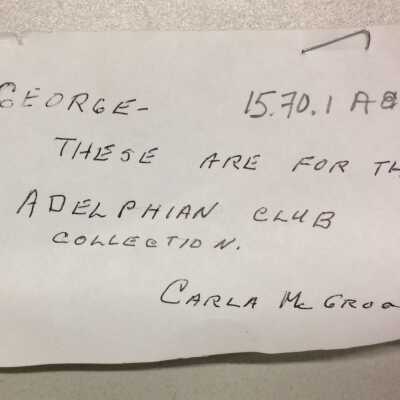 GEORGE- 15.70.1
THESE ARE FOR
ADELPHIAN CLUB
COLLECTION.
CARLA